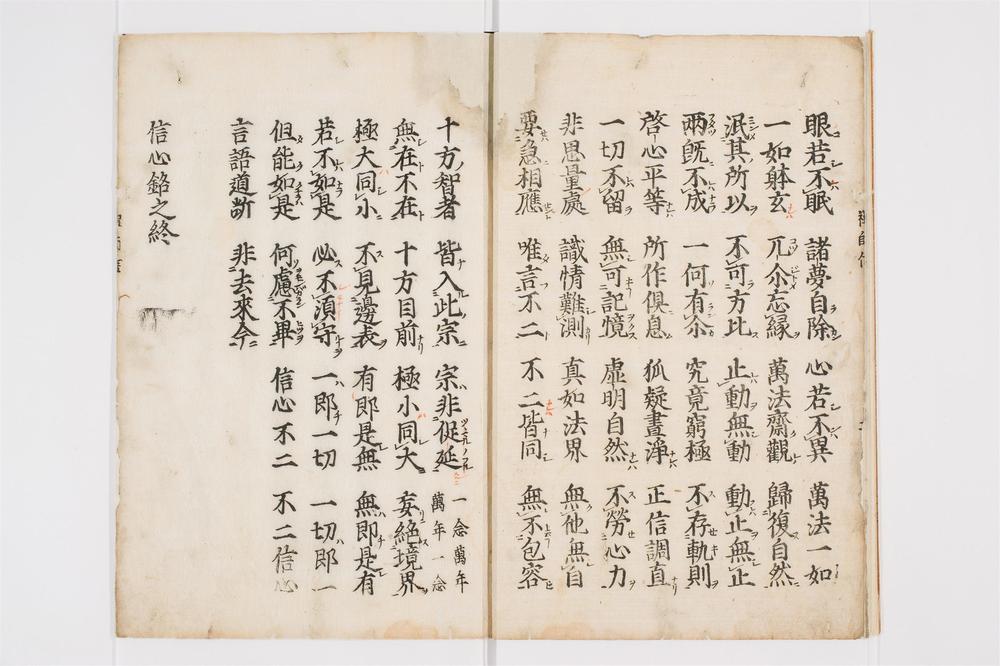 眼若不眠 諸夢自除 心若不異 萬法一如
一如躰玄 兀尒忘縁 萬法齋觀 歸復自然
泯其所以 不可方比 止動無動 動止無止
兩旣不成 一何有尒 究竟窮極 不存軌則
啓心平等 所作俱息 狐疑盡淨 正信調直
一切不留 無可記憶 虛明自然 不勞心力
非思量處 識情難測 真如法界 無他無自
要急相應 唯言不二 不二皆同 無不包容
十方智者 皆入此宗 宗非促延 一念萬年 萬年一念
無在不在 十方目前 極小同大 妄絕境界
極大同小 不見邊表 有即是無 無即是有
若不如是 必不湏守 一即一切 一切即一
但能如是 何慮不畢 信心不二 不二信心
言語道断 非去來今
信心銘之終